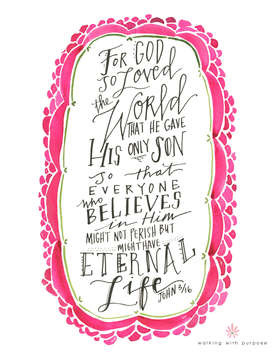 FOR GOD
so Loved
the
World
THAT HE GAVE
HIS ONLY SON
so that
EVERYONE
who
BELIEVES
in Him
MIGHT NOT PERISH BUT
MIGHT HAVE
ETERNAL
Life
JOHN 3/16
walking with purpose